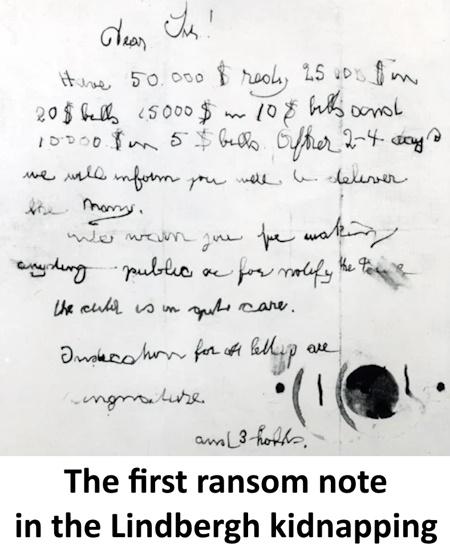 Dear Sir!
Have 50.000 $ redy 25 000 $ in
20 $ bills 15000 $ in 10 $ bills and
10000 $ in 5 $ bills. After 2-4 days
we will inform you were to deliver
the Mony.
We warn you for making
anyding public or for notify the
the child is in gut care.
Indication for all are
singnature
and 3 holds.
The first ransom note
in the Lindbergh kidnapping